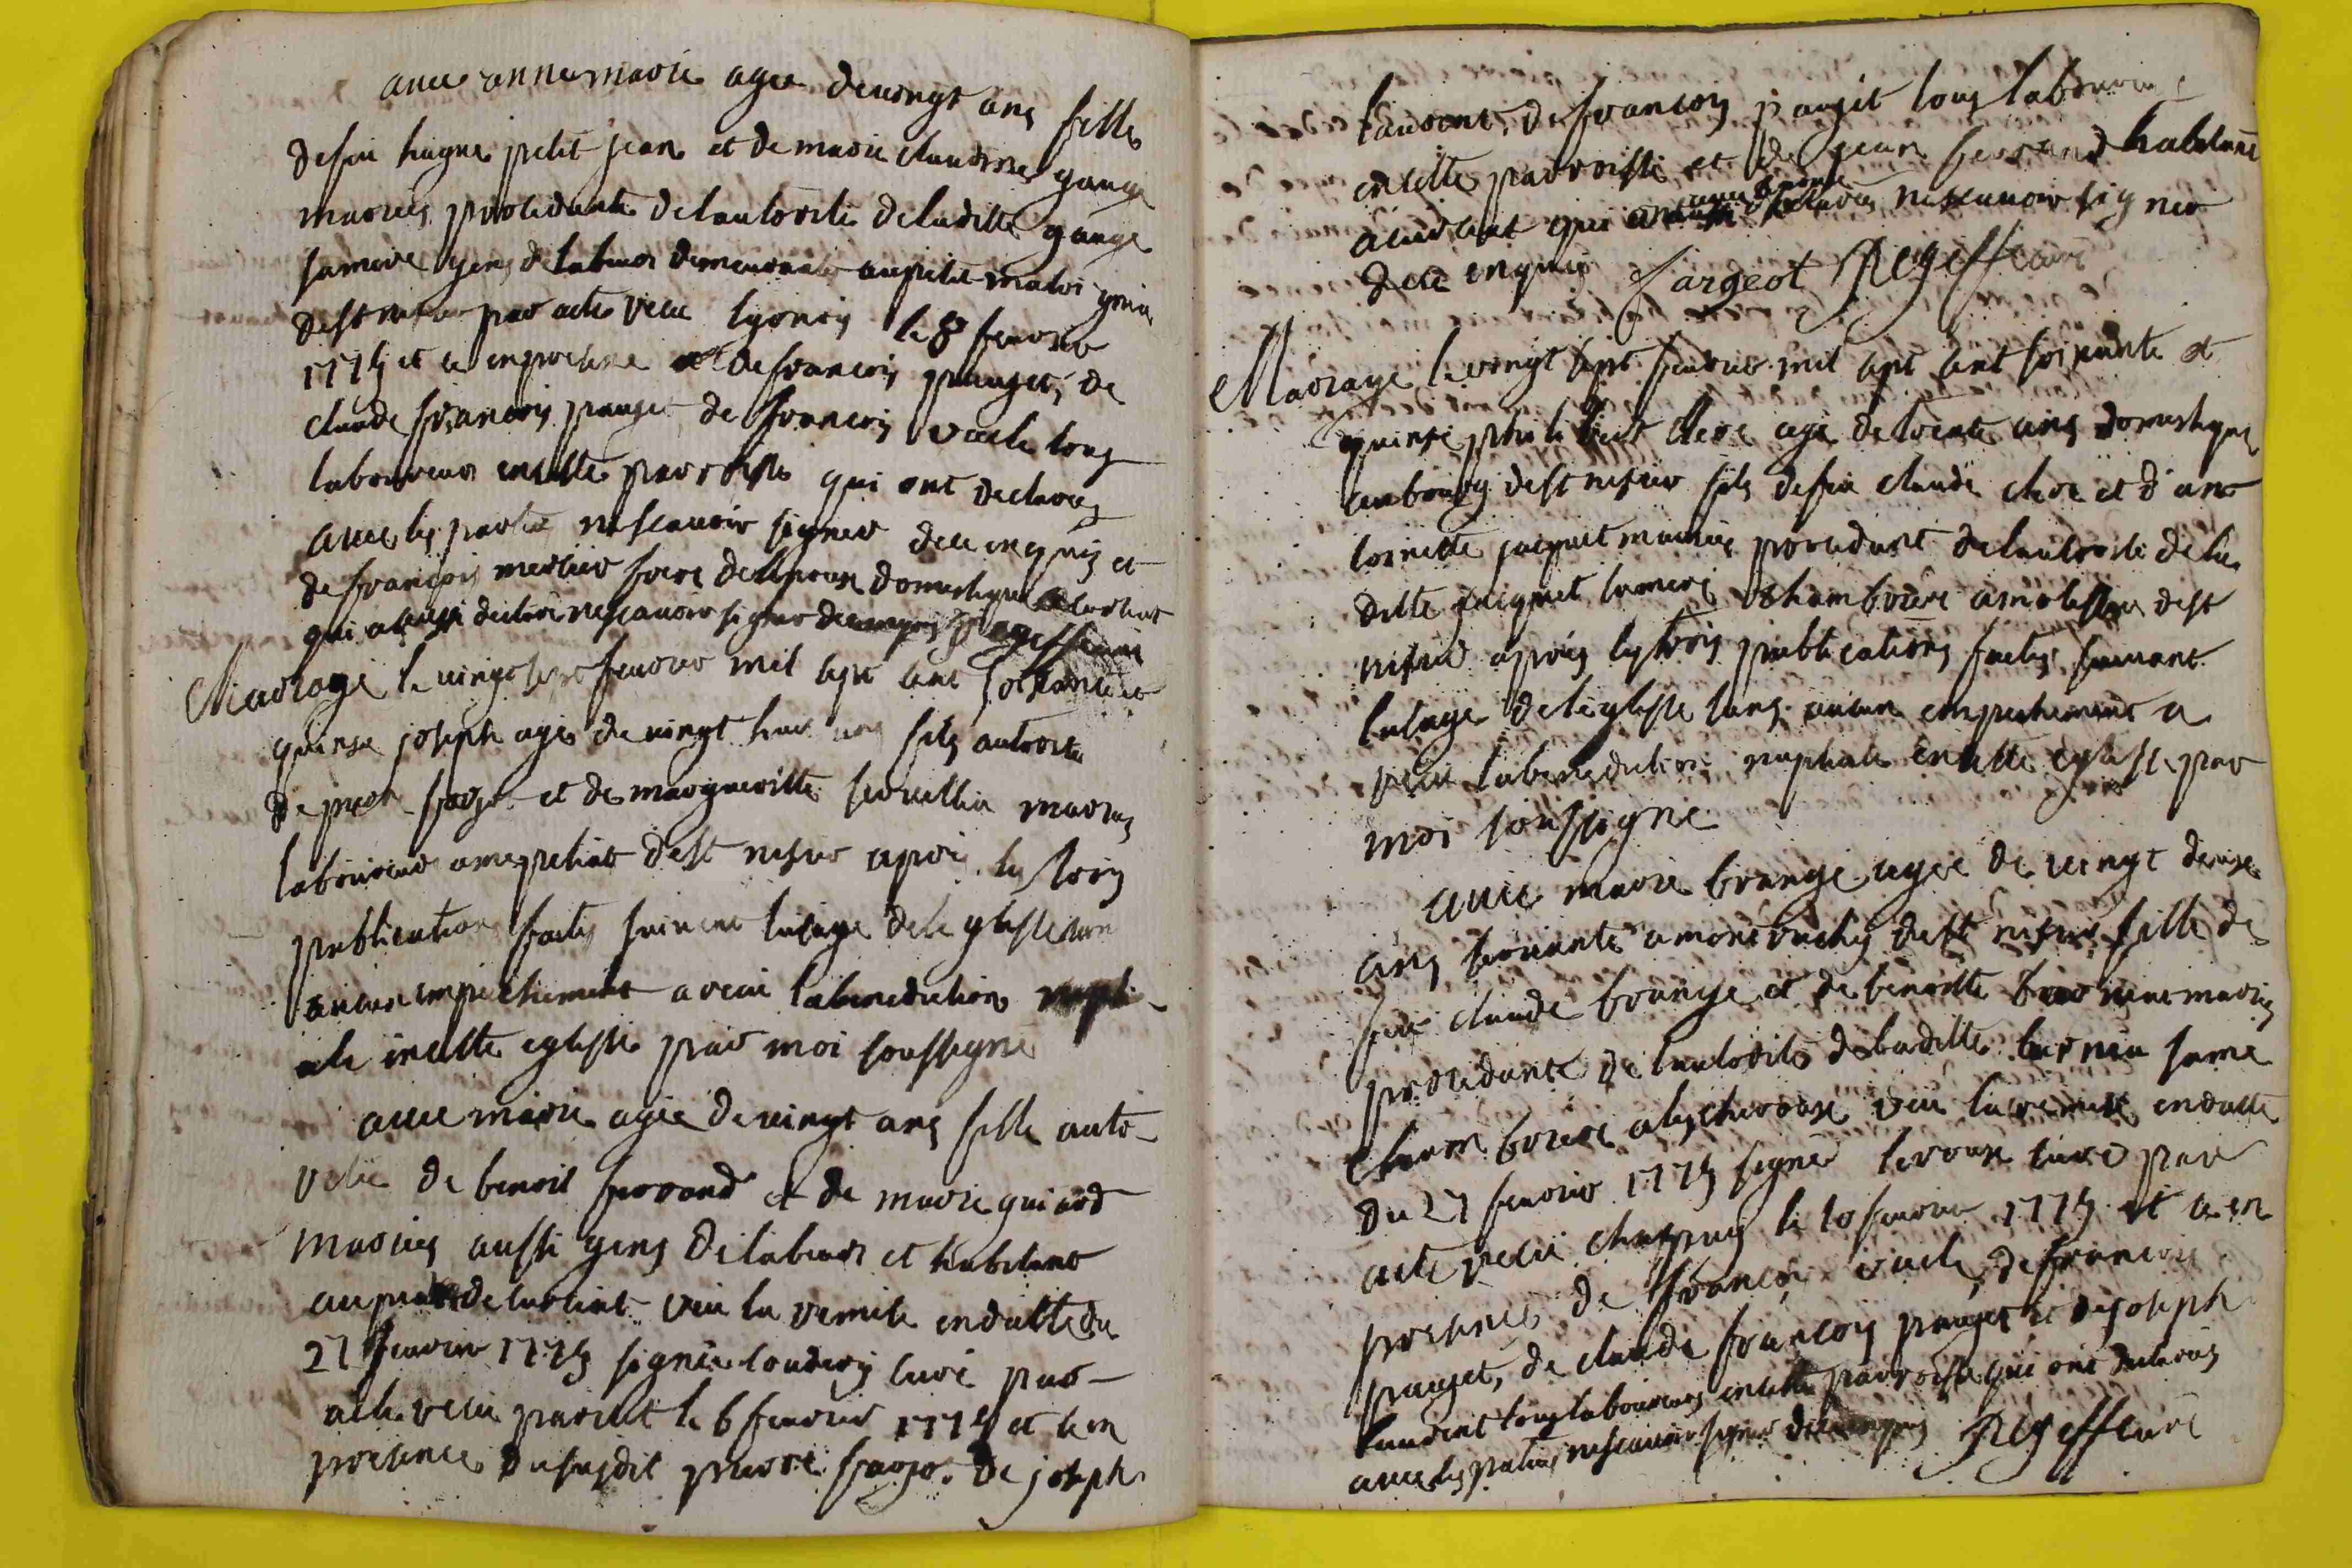 avec anne marie agee de vingt ans fille
defeu hugue petit jean et de marie claudine gauge
mariés procedante delautorité deladitte gauge
samere gens delabeur demeurante aupetit
dest par acte recu lyonois le 8 fevrier
1775 et ce enpresence de francois pauget, de
claude francois pauget de francois vacle tous
laboureurs encette parroisse qui ont declarés
avec les parties nescavoir signer dece enquis et
de francois mercier frere delepoux domestique
qui a aussi declaré nescavoir signer dece enquis
Mariage le vingt sept fevrier mil sept cent soixante et
quinse joseph agé de vingt huit ans fils autorisé
de pierre farjot et de margueritte mariés
laboureurs dest apres les trois
publications faites suivant lusage deleglisse sans
aucun empechement a recu labenediction nupti-
ale encette eglisse par moi soussigné
avec marie agée de vingt ans fille auto-
risée de benoit ferrand et de marie guiard
mariés aussi gens delabeur et habitant
vu la remise endatte du
27 fevrier 1775 signée curé par
acte recu le 6 fevrier 1775 et ce en
presence dususdit pierre farjot de joseph
laurent, de francois pauget tous laboureurs
encette parroisse et de jean ferrand habitant
qui ont declarés nescavoir signer
dece enquis fargeot
Mariage le vingt sept fevrier mil sept cent soixante et
quinse philibert clere agé de trente ans domestique
aubourg dest fils defeu claude clere et d'ant
toinette jacquet mariés procedant delautorité dela
ditte jacquet samere chambriere dest
apres les trois publications faites suivant
lusage deleglisse sans aucun empechement a
recu labenediction nuptiale encette eglisse par
moi soussigné
avec marie brange agée de vingt deux
ans servante dest fille de
feu claude brange et de benoitte mariés
procedante de lautorité deladitte samere
chambriere vu la remise endatte
du 27 fevrier 1775 signé curé par
acte recu le 10 fevrier 1775 et ce en
presence de francois vacle, de francois
pauget, de claude francois pauget et de joseph
laurent tous laboureurs encette parroisse qui ont declarés
avec les parties nescavoir signer dece enquis